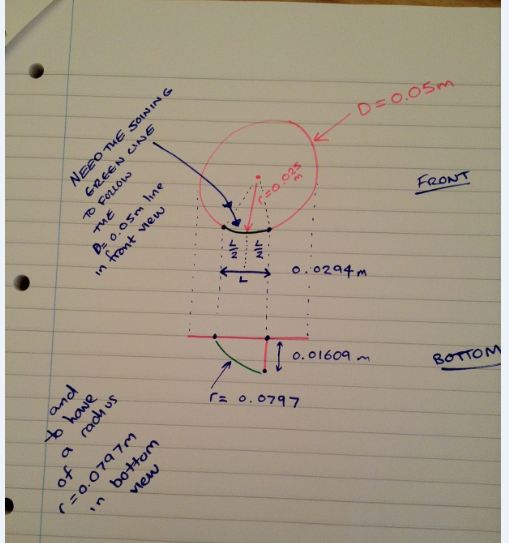 NEED THE JOINING
GREEN LINE
TO FOLLOW
THE
D=0.05m line
in front view
D=0.05m
r=0.025
m
FRONT
L/2 L/2
L
0.0294m
0.01609m
BOTTOM
r=0.0797
and
to have
of a radius
r=0.0797m
in bottom
view